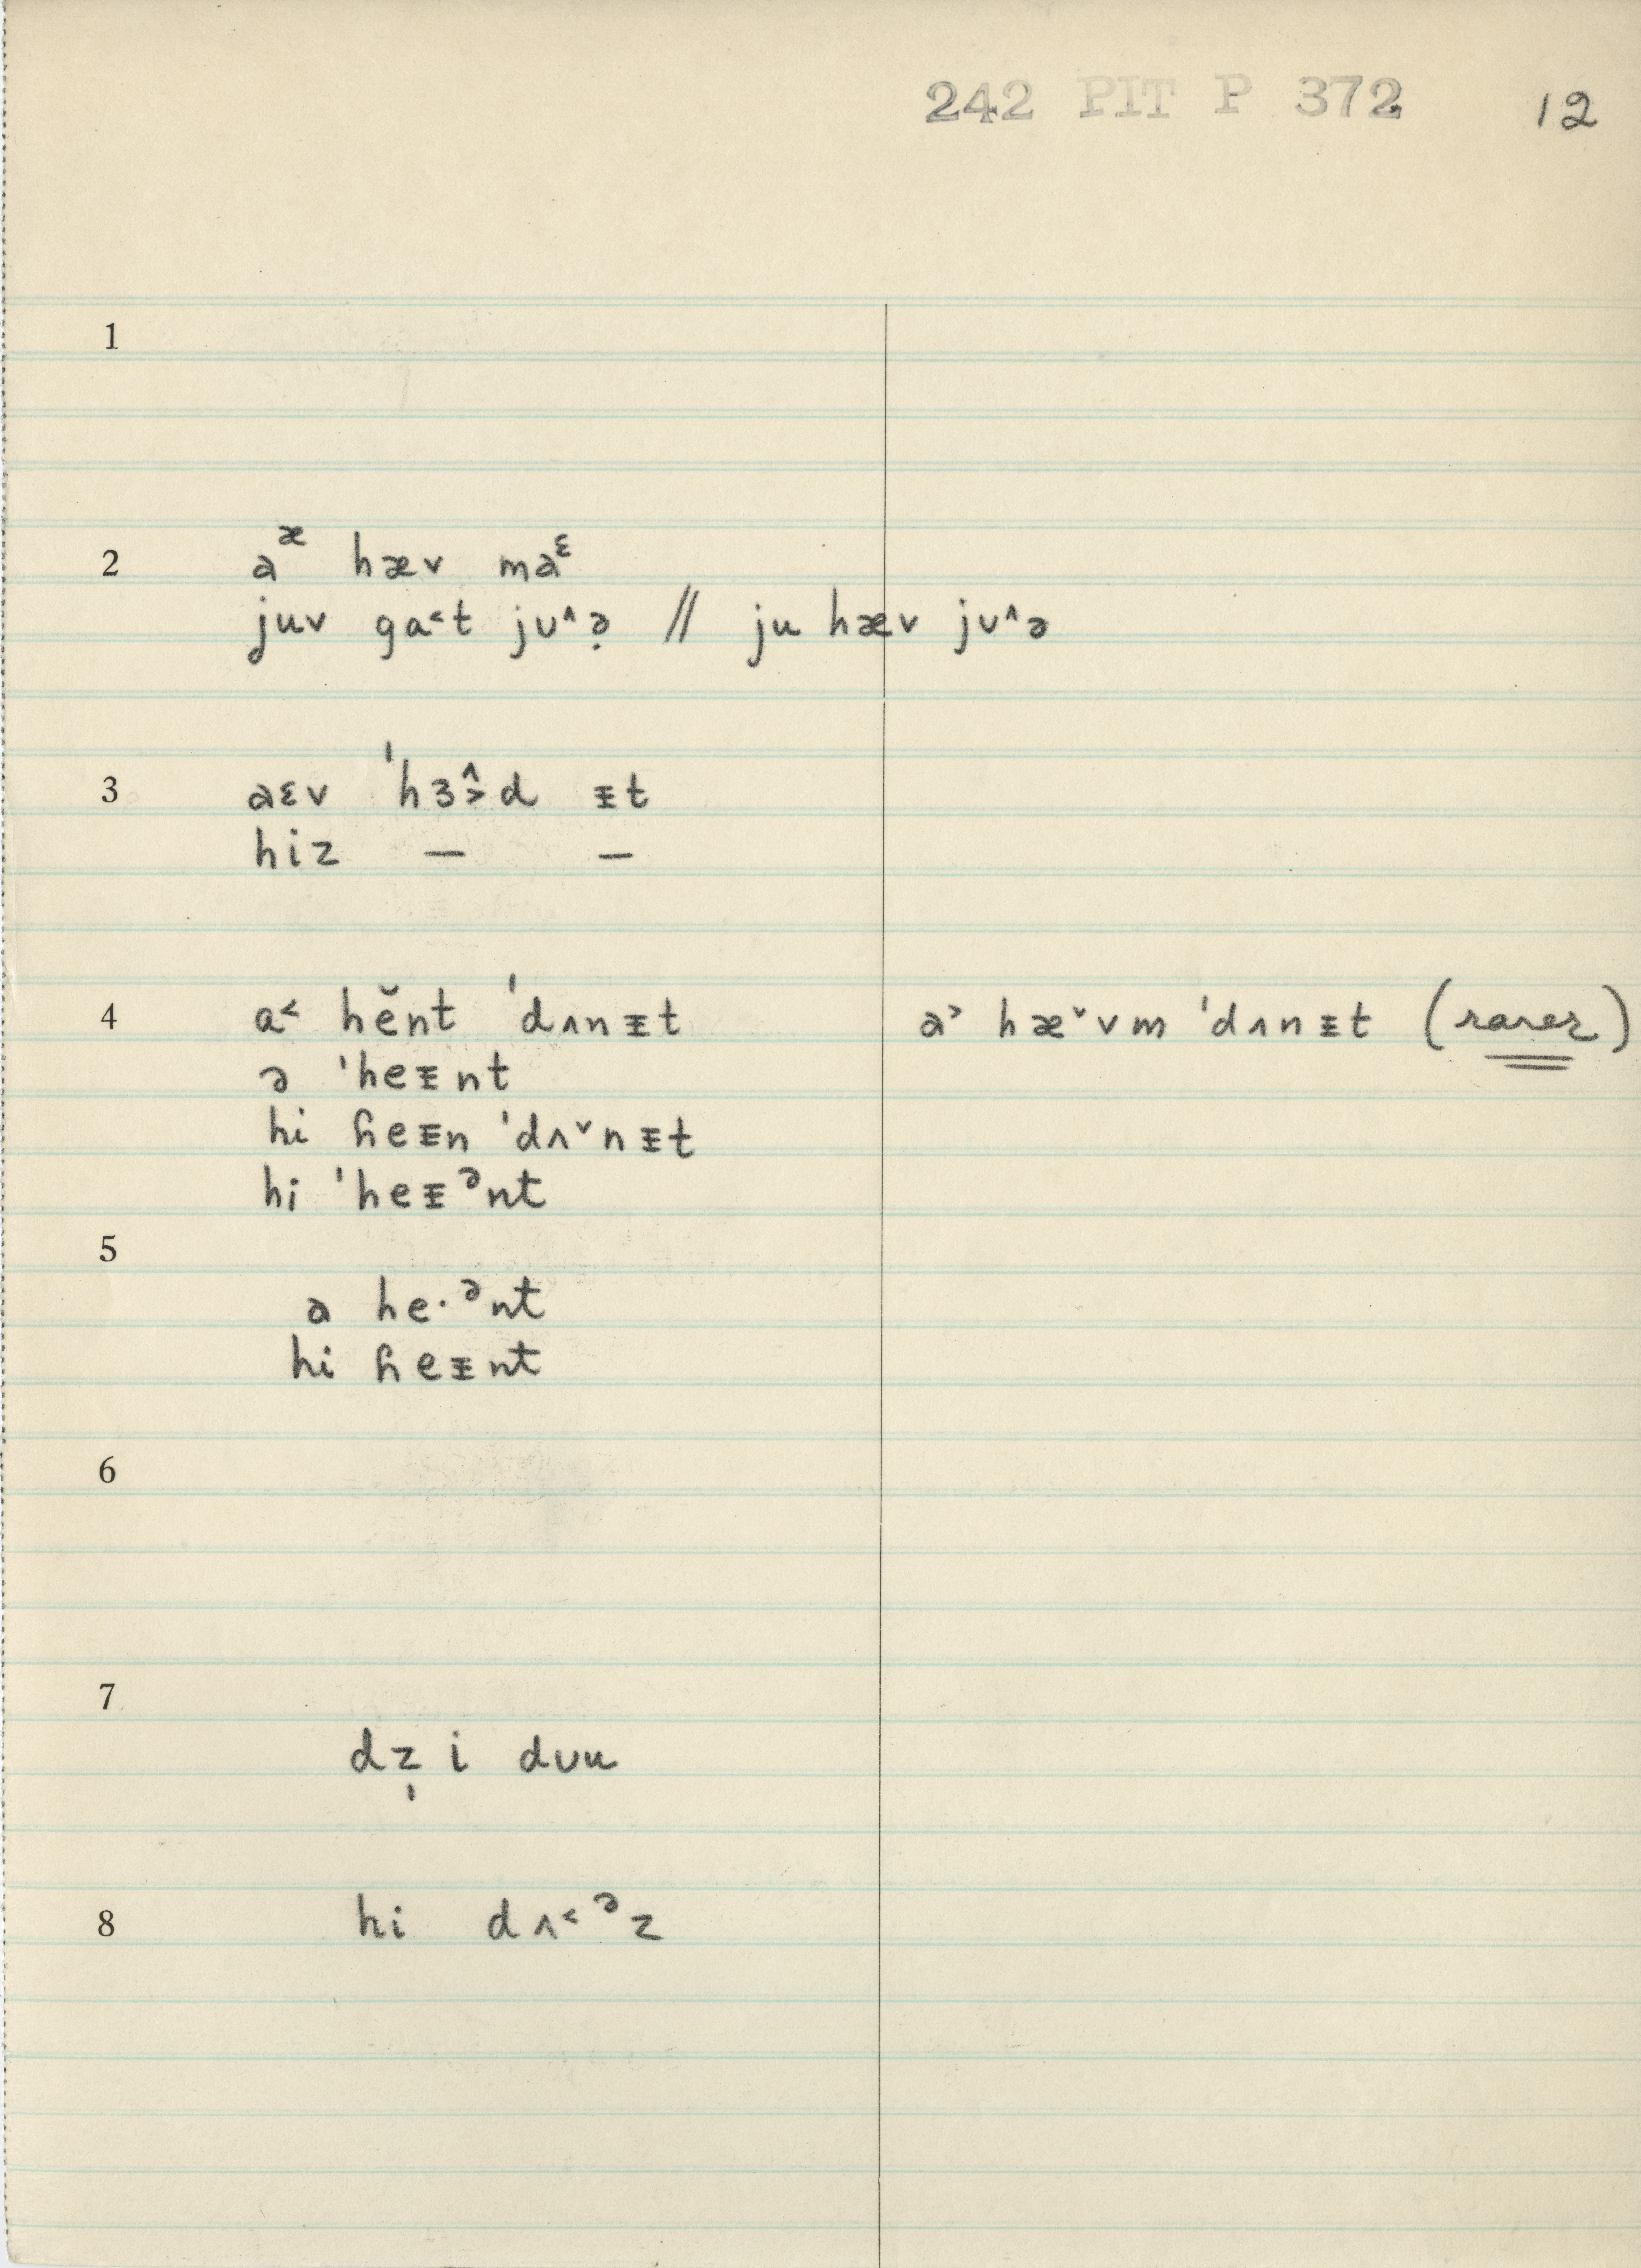 242 PIT P 372 12
1
2 aᵆ hæv maᵋ
juv ga˂t jʊ˄ə̣ // ju hæv jʊ˄ə
3 aɛv ˈhɜ˄˃d ᵻt
hiz — —
4 a˂ hĕnt ˈdʌnᵻt a˃ hæ˅vm ˈdʌnᵻt (rarer)
ə ˈheᵻnt
hi ɦeᵻn ˈdʌ˅nᵻt
hi ˈheᵻᵊnt
5
a he·ᵊnt
hi ɦeᵻnt
6
7
dz̩ i dʊu
8 hi dʌ˂ᵊz